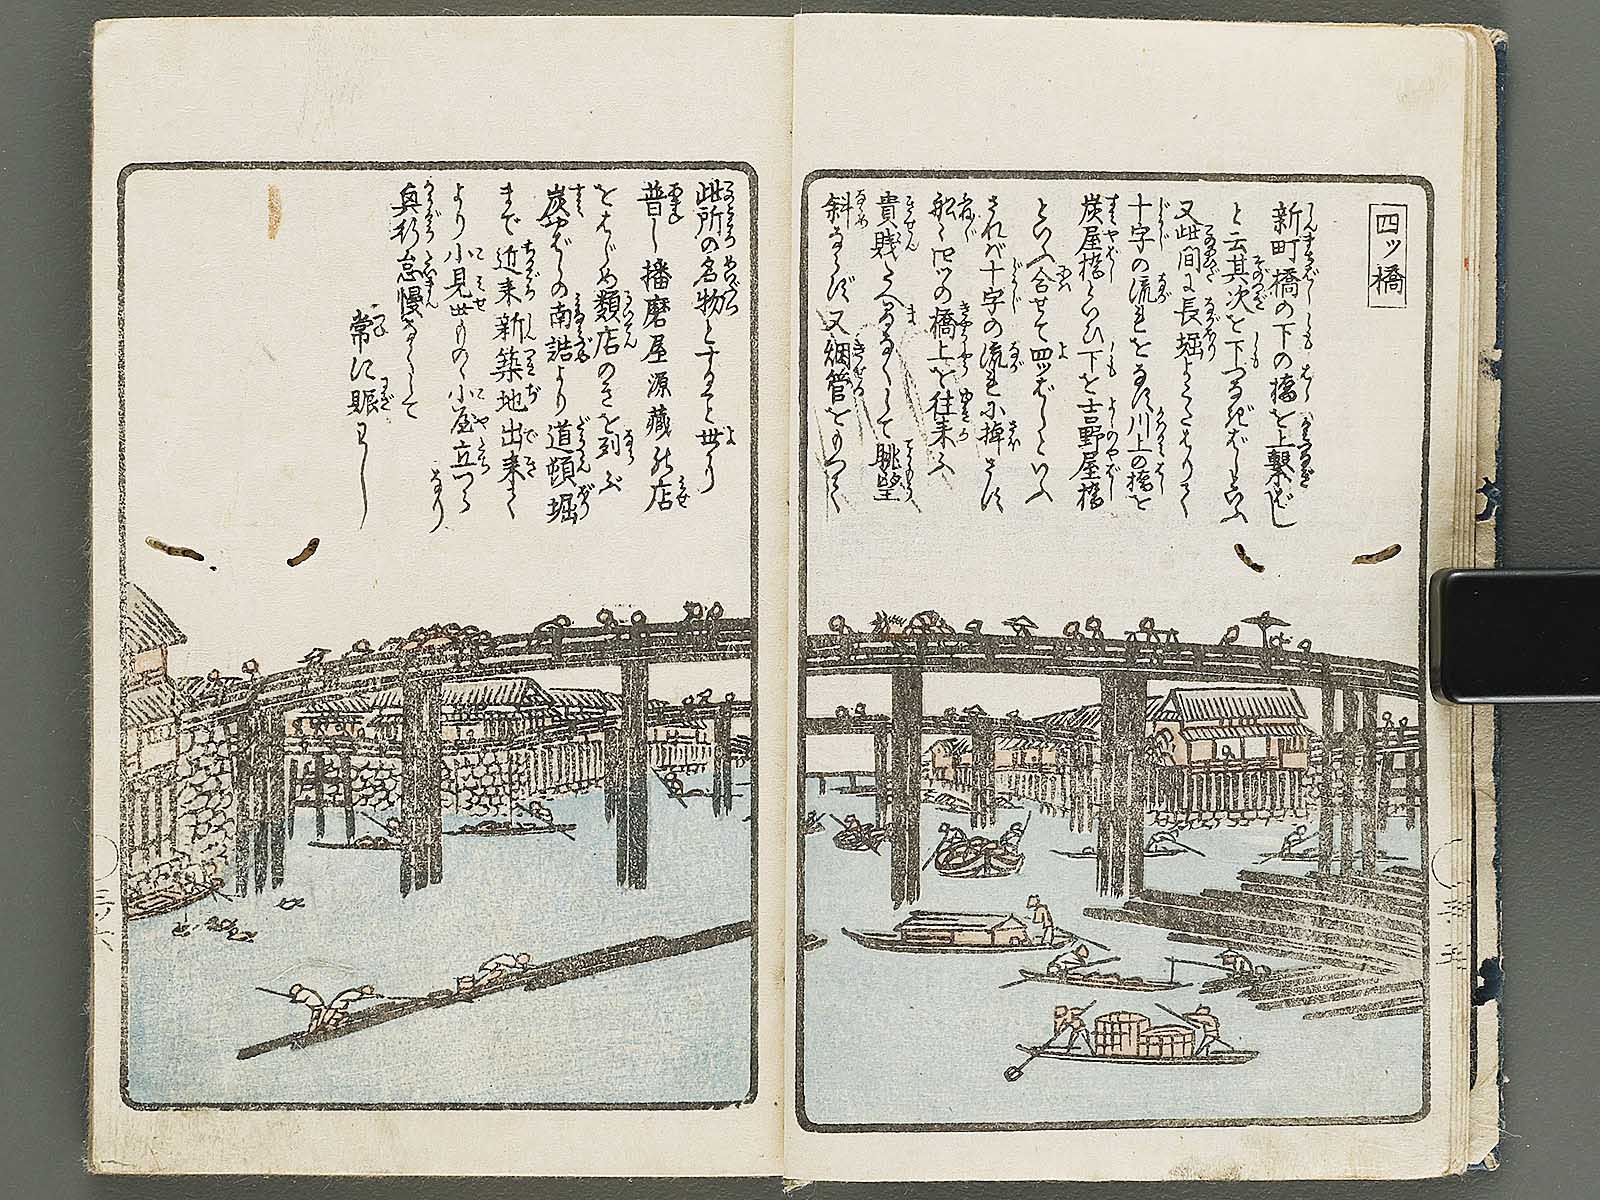 四ッ橋
新町橋の下の橋を上繋ばし
と云其次を下つなぎばしと云ふ
又此間に長堀よこたはりて
十字の流れをなす川上の橋を
炭屋橋といひ下を吉野屋橋
といふ合せて四ッばしといふ
されば十字の流れに掉さす
船は四ツの橋上を往来ふ
貴賎たへまなくして眺望
斜ならず又烟管をもつて
此所の名物とすること世より
普し播磨屋源蔵の店
をはじめ類店のきを列ぶ
炭やばしの南詰より道頓堀
まで近来新築地出来て
より小見世もの小屋立つゞ
き怠慢なくして
常に賑はし
三ノ六